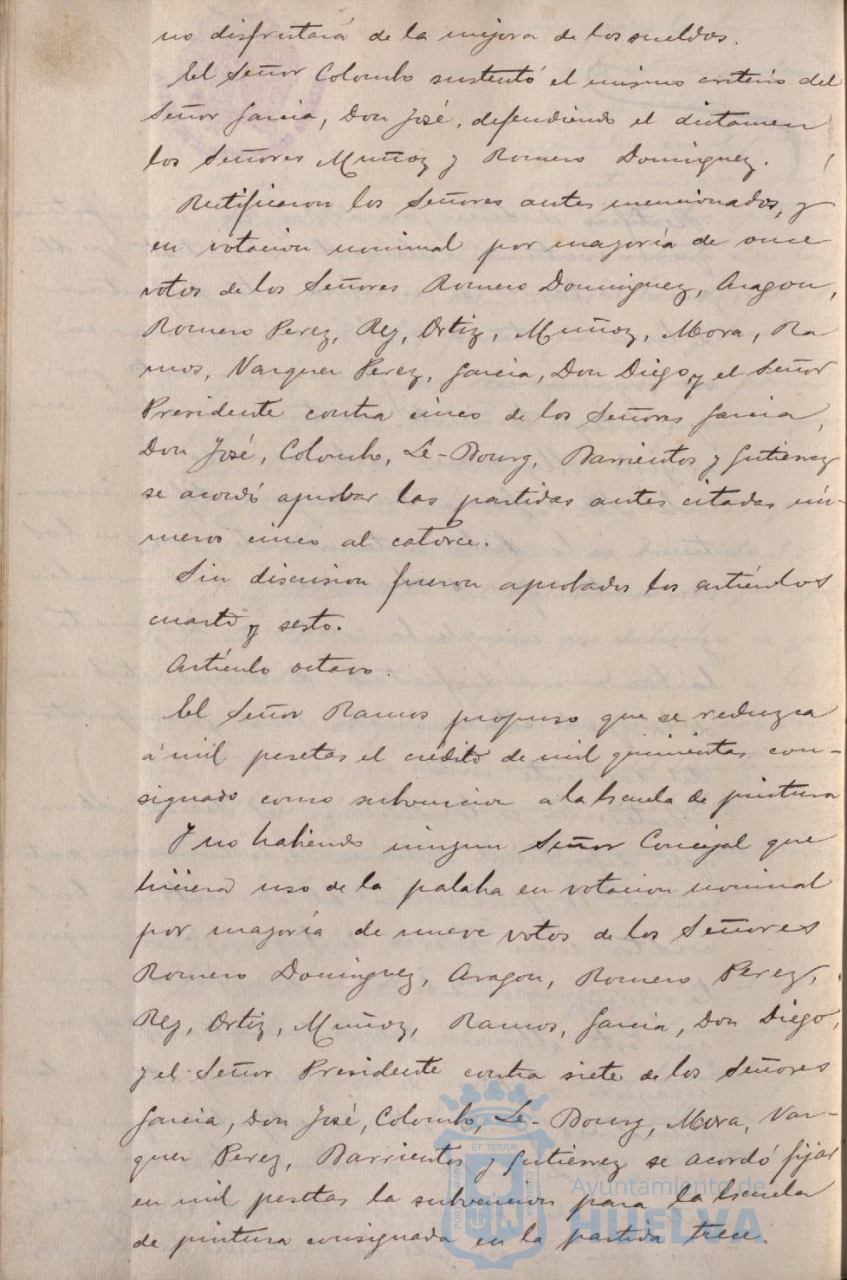 no disfrutará de la mejora de los sueldos.
El Señor Colombo sustentó el mismo criterio del
Señor Garcia, Don José, defendiendo el dictamen
los Señores Muñoz y Romero Dominguez.
Rectificaron los Señores antes mencionados, y
en votacion nominal por mayoría de once
votos de los Señores Romero Dominguez, Aragon,
Romero Perez, Rey, Ortiz, Muñoz, Mora, Ra
mos, Vazquez Perez, Garcia, Don Diego y el Señor
Presidente contra cinco de los Señores Garcia,
Don José, Colombo, Le-Bourg, Barrientos y Gutierrez
se acordó aprobar las partidas antes citadas nú-
meros cinco al catorce.
Sin discusion fueron aprobados los artículos
cuarto y sesto.
Artículo octavo.
El Señor Ramos propuso que se reduzca
á mil pesetas el crédito de mil quinientas con-
signado como subvencion a la Escuela de pintura
Y no habiendo ningun Señor Concejal que
hiciera uso de la palabra en votacion nominal
por mayoría de nueve votos de los Señores
Romero Dominguez, Aragon, Romero Perez,
Rey, Ortiz, Muñoz, Ramos, Garcia, Don Diego,
y el Señor Presidente contra siete de los Señores
Garcia, Don José, Colombo, Le-Bourg, Mora, Vaz-
quez Perez, Barrientos y Gutierrez se acordó fijar
en mil pesetas la subvencion para la Escuela
de pintura consignada en la partida trece.
ET TERRÆ
Ayuntamiento de
HUELVA